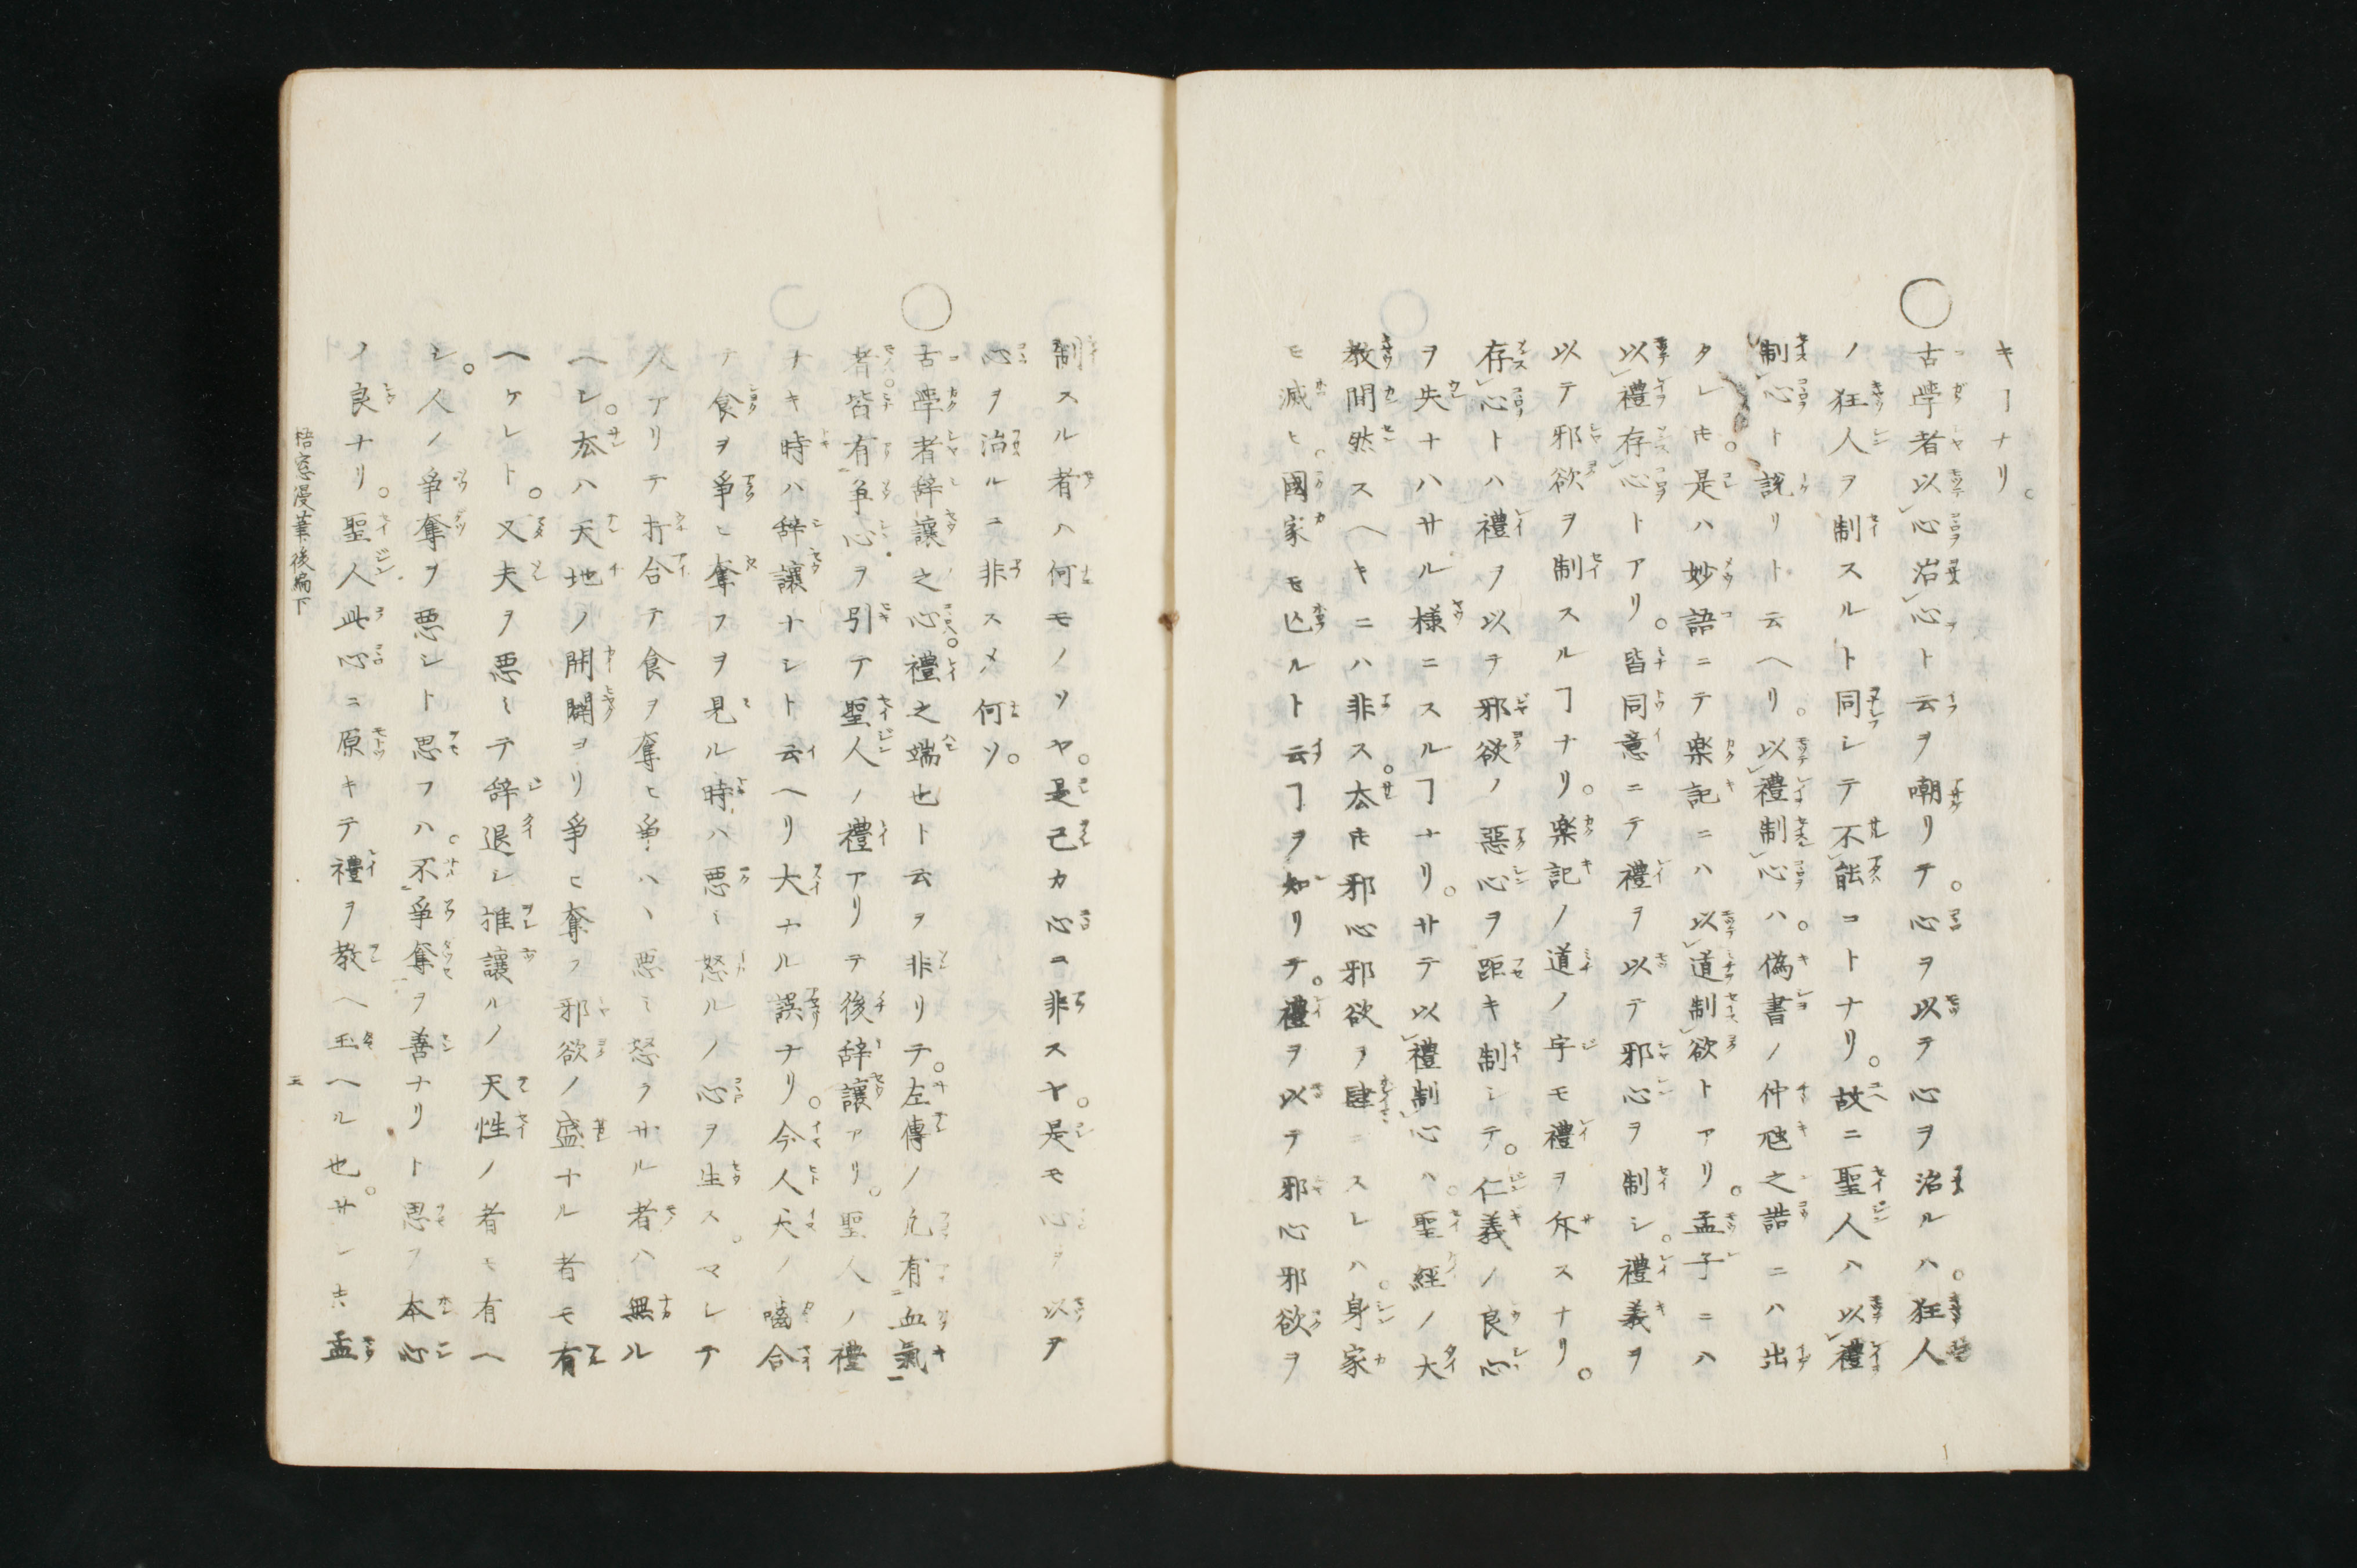 キヿナリ。
○古學者以心治心ト云ヲ嘲リテ。心ヲ以テ心ヲ治ルハ。狂人
ノ狂人ヲ制スルト同シテ不能コトナリ。故ニ聖人ハ以禮
制心ト説リト云ヘリ。以禮制心ハ。偽書ノ仲虺之誥ニハ出
タレ𪜈。是ハ妙語ニテ楽記ニハ以道制欲トアリ。孟子ニハ
以禮存心トアリ。皆同意ニテ禮ヲ以テ邪心ヲ制シ。禮義ヲ
以テ邪欲ヲ制スルヿナリ。楽記ノ道ノ字モ禮ヲ斥スナリ。
存心トハ禮ヲ以テ邪欲ノ惡心ヲ距キ制シテ。仁義ノ良心
ヲ失ナハサル様ニスルヿナリ。サテ以禮制心ハ。聖經ノ大
教間然スヘキニハ非ス。厺𪜈邪心邪欲ヲ肆ニスレハ。身家
モ滅ヒ。國家モ亾ルト云ヿヲ知リテ。禮ヲ以テ邪心邪欲ヲ
制スル者ハ何モノソヤ。是己カ心ニ非スヤ。是モ心ヲ以テ
心ヲ治ルニ非スメ何ソ。
○古學者辞讓之心。禮之端也ト云ヲ非リテ。左傳ノ凢有血氣
者。皆有争心ヲ引テ聖人ノ禮アリテ後辞讓アリ。聖人ノ禮
ナキ時ハ辞讓ナシト云ヘリ大ナル誤ナリ。今人犬ノ噛合
テ食ヲ爭ヒ奪フヲ見ル時ハ悪ミ怒ルノ心ヲ生ス。マレテ
人アリテ打合テ食ヲ奪ヒ爭ハヽ悪ミ怒ラサル者ハ無ル
ヘシ。厺ハ天地ノ開闢ヨリ爭ヒ奪フ邪欲ノ盛ナル者モ有
ヘケレト。又夫ヲ悪ミテ辞退シ推讓ルノ天性ノ者モ有ヘ
シ。人ノ爭奪ヲ悪シト思フハ。不爭奪ヲ善ナリト思フ本心
ノ良ナリ。聖人此心ニ原キテ禮ヲ教ヘ玉ヘル也。サレ𪜈孟
梧窓漫筆後編下
五